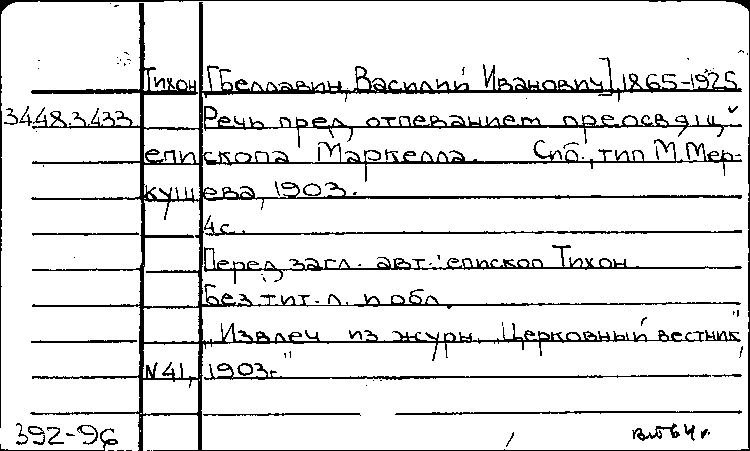 Тихон [Беллавин, Василий Иванович], 1865-1925
3448.3433 Речь пред отпеванием преосвящ.
епископа Маркелла. Спб., тип М. Мер-
кушева, 1903.
4с.
Перед загл. авт.: епископ Тихон.
Без тит. л. и обл.
„Извлеч из журн. „Церковный вестник",
N 41, 1903г."
392-96